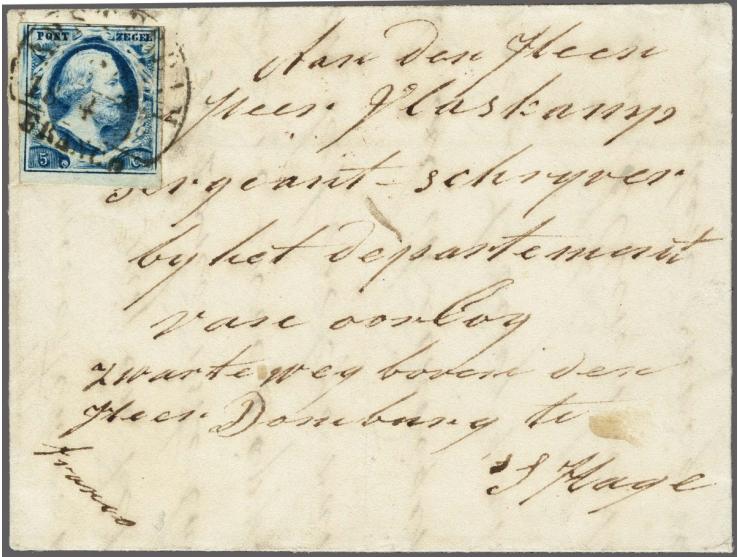 POST ZEGEL
5 C
FRANCO
Aan den Heer
Heer Vlaskamp
Sergeant-schryver
by het departement
van oorlog
zwarteweg boven den
Heer Domburg te
'S Hage
franco